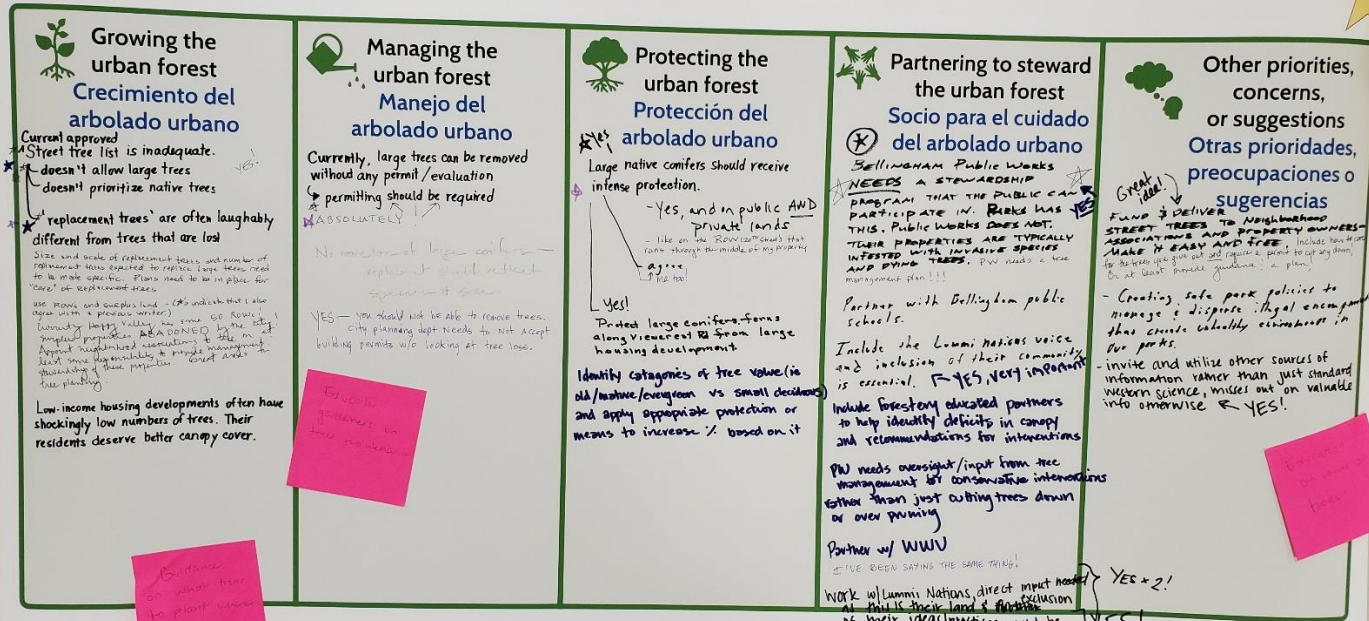 Growing the
urban forest
Crecimiento del
arbolado urbano
Current approved
Street tree list is inadequate.
yes!
doesn't allow large trees
doesn't prioritize native trees
"replacement trees" are often laughably
different from trees that are lost
Size and scale of replacement trees and number of
replacement trees expected to replace large trees need
to be more specific. Plans need to be in place for
"care" of replacement trees
use ROWs and surplus land - (*'s indicate that I also
agree with a previous writer)
Currently Happy Valley has some 60 ROWs!
surplus properties ABADONED by the city.
Appoint neighborhood associations to take on at
least some responsibility to provide management
stewardship of these properties. Great areas for
tree planting.
Low-income housing developments often have
shockingly low numbers of trees. Their
residents deserve better canopy cover.
Guidance
on what tree
to plant where
Managing the
urban forest
Manejo del
arbolado urbano
Currently, large trees can be removed
without any permit/evaluation
permitting should be required
ABSOLUTELY!
No large conifers
replacement should reflect
YES - you should not be able to remove trees.
city planning dept Needs to Not Accept
building permits w/o looking at tree loss.
on
tree
Protecting the
urban forest
Protección del
arbolado urbano
Yes
Large native conifers should receive
intense protection.
- Yes, and on public AND
private lands
- like on the ROW that
runs through the middle of my property
agree
me too!
Yes!
Protect large conifers
along viewcrest Rd from large
housing development
Identify catagories of tree value (ie
old/mature/evergreen vs small decidous)
and apply appropriate protection or
means to increase % based on it
Partnering to steward
the urban forest
Socio para el cuidado
del arbolado urbano
BELLINGHAM PUBLIC WORKS
NEEDS A STEWARDSHIP
PROGRAM THAT THE PUBLIC CAN
PARTICIPATE IN. PARKS HAS
YES
THIS. PUBLIC WORKS DOES NOT.
THEIR PROPERTIES ARE TYPICALLY
INFESTED WITH INVASIVE SPECIES
AND DYING TREES. PW needs a tree
management plan!!!
Partner with Bellingham public
schools.
Include the Lummi nations voice
and inclusion of their community
is essential. YES, very important
Include forestery educated partners
to help identify deficits in canopy
and recommendations for interventions
PW needs oversight/input from tree
management for conservative interventions
rather than just cutting trees down
or over pruning
Partner w/ WWU
I'VE BEEN SAYING THE SAME THING!
Work w/Lummi Nations, direct input needed
YES + 2!
as this is their land & exclusion
of their
YES!
Other priorities,
concerns,
or suggestions
Otras prioridades,
preocupaciones o
sugerencias
Great
idea!
FUND & DELIVER
STREET TREES TO NEIGHBORHOOD
ASSOCIATIONS AND PROPERTY OWNERS-
MAKE IT EASY AND FREE. Include how to care
for the trees you give out and require a permit to cut any down,
or at least provide guidance & a plan!
- Creating safe park policies to
manage & disperse illegal
that create unhealthy in
our parks.
- invite and utilize other sources of
information rather than just standard
western science, misses out on valuable
info otherwise YES!
trees